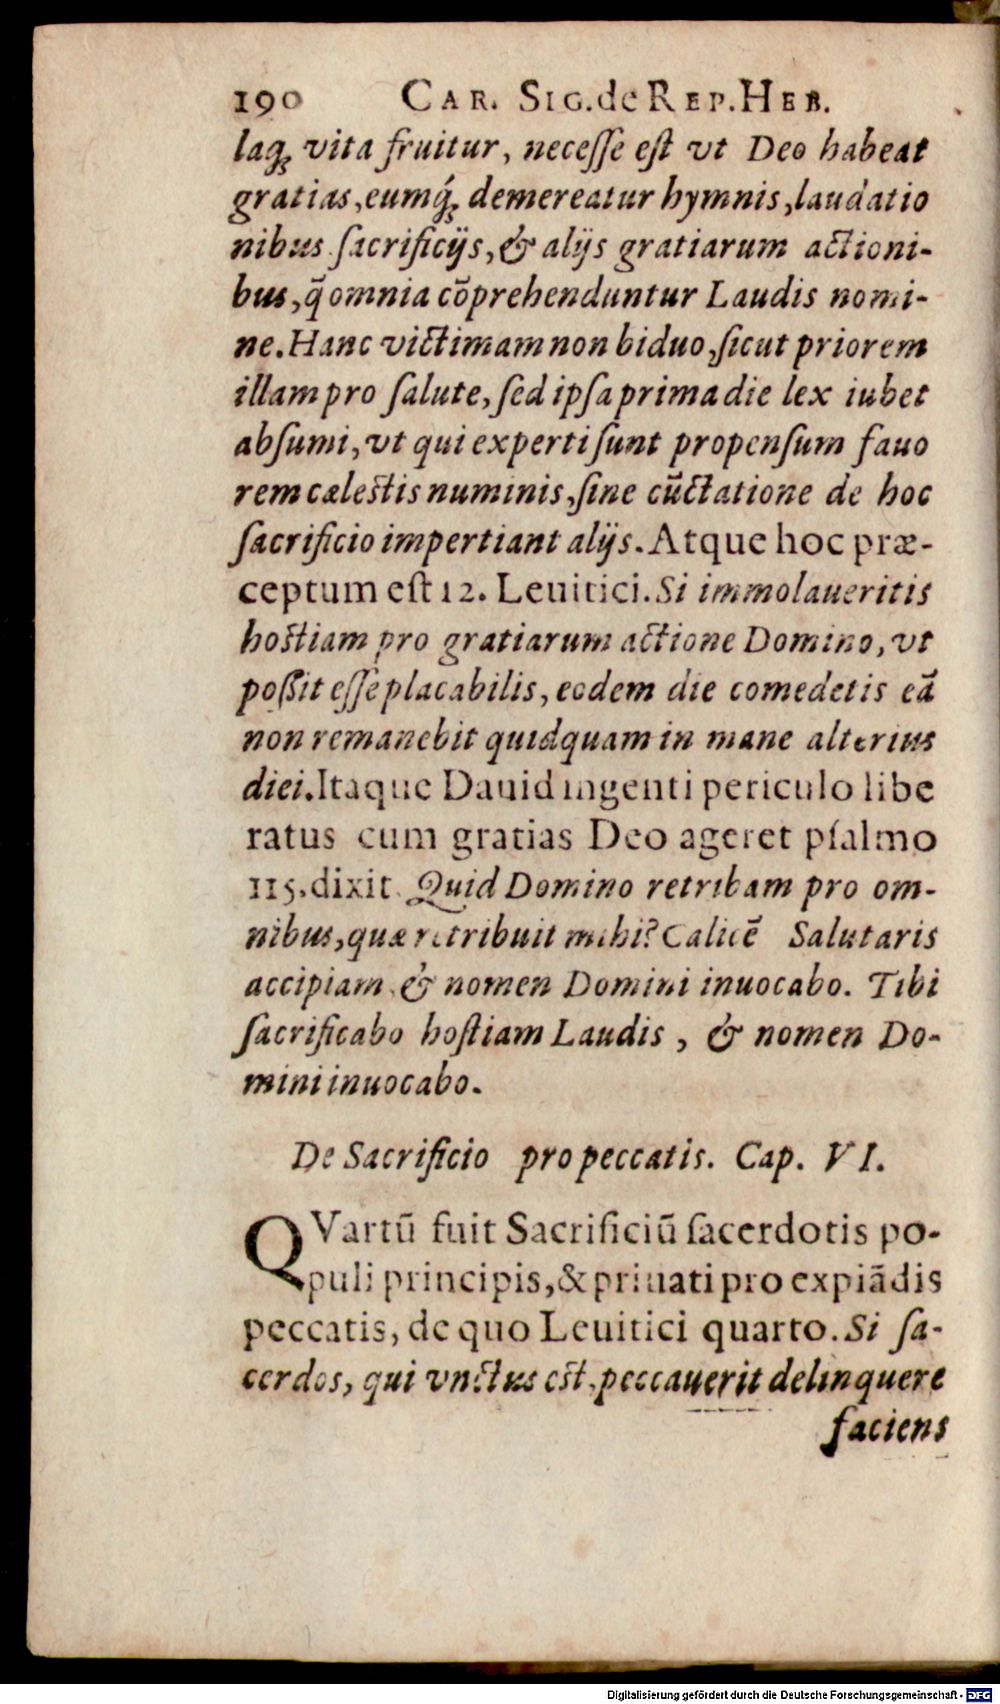 190 CAR. SIG. de REP. HEB.
laq́ꝫ vita fruitur, neceſſe eſt vt Deo habeat
gratias, eumq́ꝫ demereatur hymnis, laudatio
nibus ſacrificijs, & alijs gratiarum actioni-
bus, q̃ omnia cõprehenduntur Laudis nomi-
ne. Hanc victimam non biduo, ſicut priorem
illam pro ſalute, ſed ipſa prima die lex iubet
abſumi, vt qui experti ſunt propenſum fauo
rem cæleſtis numinis, ſine cũctatione de hoc
ſacrificio impertiant alijs. Atque hoc præ-
ceptum eſt 12. Leuitici. Si immolaueritis
hoſtiam pro gratiarum actione Domino, vt
poſſit eſſe placabilis, eodem die comedetis eã
non remanebit quidquam in mane alterius
diei. Itaque Dauid ingenti periculo libe
ratus cum gratias Deo ageret pſalmo
115. dixit. Quid Domino retribam pro om-
nibus, quæ retribuit mihi? Calicẽ Salutaris
accipiam & nomen Domini inuocabo. Tibi
ſacrificabo hoſtiam Laudis, & nomen Do-
mini inuocabo.
De Sacrificio pro peccatis. Cap. VI.
QVartũ fuit Sacrificiũ ſacerdotis po-
puli principis, & priuati pro expiãdis
peccatis, de quo Leuitici quarto. Si ſa-
cerdos, qui vnctus eſt, peccauerit delinquere
faciens
Digitalisierung gefördert durch die Deutsche Forschungsgemeinschaft - DFG